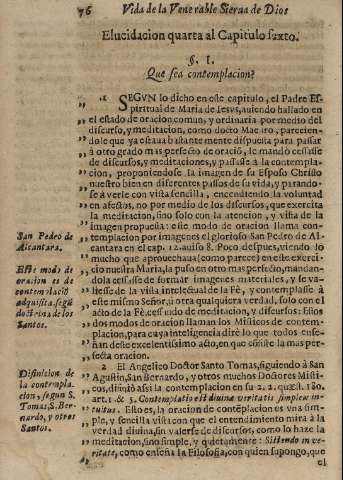 76 Vida de la Venerable Sierua de Dios
Elucidacion quarta al Capitulo sexto.
§. I.
Que sea contemplacion?
1 SEGVN lo dicho en este capitulo, el Padre Es-
piritual de Maria de Iesus, auiendo hallado en
el estado de oracion comun, y ordinaria por medio del
discurso, y meditacion, como docto Maestro, parecien-
dole que ya estaua bastantemente dispuesta para passar
à otro grado mas perfecto de oraciõ, le mandò cessasse
de discursos, y meditaciones, y passasse à la contempla-
cion, proponiendose la imagen de su Esposo Christo
nuestro bien en diferentes passos de su vida, y parando-
se à verle con vista sencilla, encendiendo la voluntad
en afectos, no por medio de los discursos, que exercita
la meditacion, sino solo con la atencion, y vista de la
imagen propuesta: este modo de oracion llama con-
San Pedro de
Alcantara.
templacion por imagenes el glorioso San Pedro de Al-
cantara en el cap. 12. auiso 8. Poco despues, viendo lo
mucho que aprouechaua (como parece) en este exerci-
cio nuestra Maria, la puso en otro mas perfecto, mandan-
Este modo de
oracion es de
contemplaciõ
adquisita, segũ
doctrina de los
Santos.
dola cessasse de formar imagenes materiales, y se va-
liesse de la vista intelectual de la Fè, y contemplasse à
este mismo Señor, ù otra qualquiera verdad, solo con el
acto de la Fè, cessando de meditacion, y discursos: Estos
dos modos de oracion llaman los Misticos de contem-
placion, para cuya inteligencia dirè lo que todos ense-
ñan deste excelentissimo acto, en que consiste la mas per-
fecta oracion.
Difinicion de
la contempla-
cion, segun S.
Tomas, S. Ber-
nardo, y otros
Santos.
2 El Angelico Doctor Santo Tomas, siguiendo à San
Agustin, San Bernardo, y otros muchos Doctores Misti-
cos, difiniò assi la contemplacion en su 2. 2. quæst. 180.
art. 1. & 3. Contemplatio est divinæ veritatis simplex in-
tuitus. Esto es, la oracion de contẽplacion es vna sim-
ple, y sencilla vista con que el entendimiento mira à la
verdad diuina, sin valerse de discursos, como lo haze la
meditacion, sino simple, y quietamente: Sistendo in ve-
ritate, como enseña la Filosofia, con quien supongo, que
el